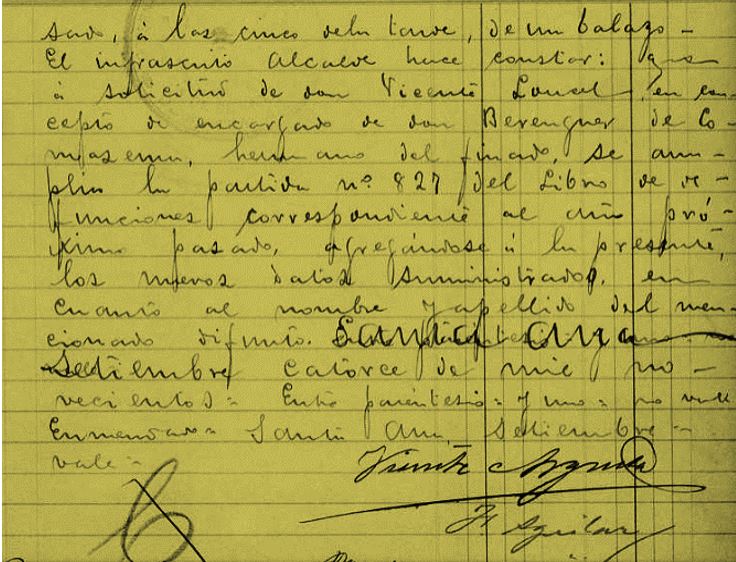 sado, à las cinco dela tarde, de un balazo -
El infrascrito Alcalde hace constar: que
à solicitud de don Vicente en con-
cepto de encargado de don Berenguer de Co-
hermano del finado, se am-
plia la partida nº 827 del Libro de de-
funciones correspondiente al año pró-
ximo pasado, agregándose à la presente,
los nuevos datos suministrados, en
cuanto al nombre y apellido del men-
cionado difunto. Santa Ana
Setiembre catorce de mil no-
vecientos = Entre paréntesis = y uno = no vale
Enmendado = Santa Ana Setiembre =
vale =
Vicente
F. Aguilar